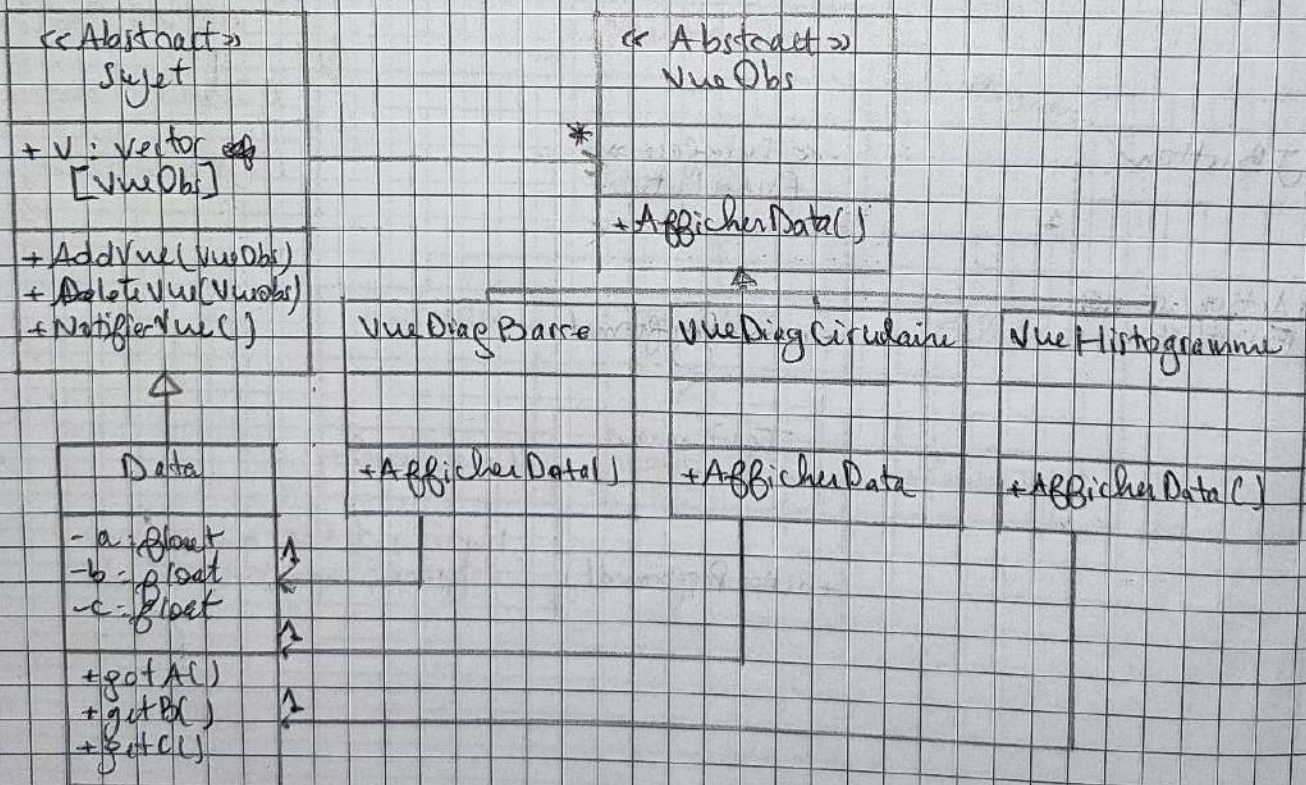 <<Abstract>>
Sujet
+ V : vector
[VueObs]
+ AddVue(VueObs)
+ DeleteVue(VueObs)
+ NotifierVue()
<< Abstract >>
VueObs
*
+AfficherData()
VueDiagBarre
+AfficherData()
VueDiagCirculaire
+AfficherData
VueHistogramme
+AfficherData()
Data
-a : float
-b : float
-c : float
1
1
1
+getA()
+getB()
+getC()